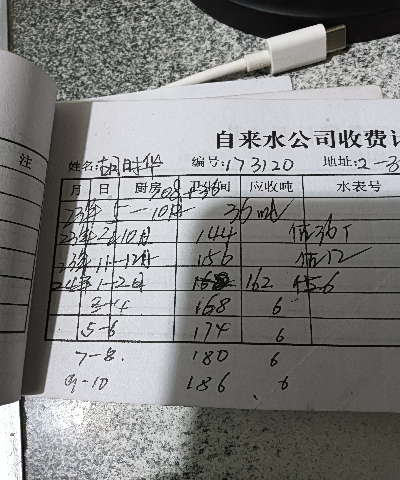 自来水公司收费
注
姓名:胡时华 编号:173120 地址:2-3
月 日 厨房 卫生间 应收吨 水表号
108+36
23年5-10月 36
144 估36T
23年11-12月 156 估12
24年1-2月 162 估6
3-4 168 6
5-6 174 6
7-8. 180 6
9-10 186 6